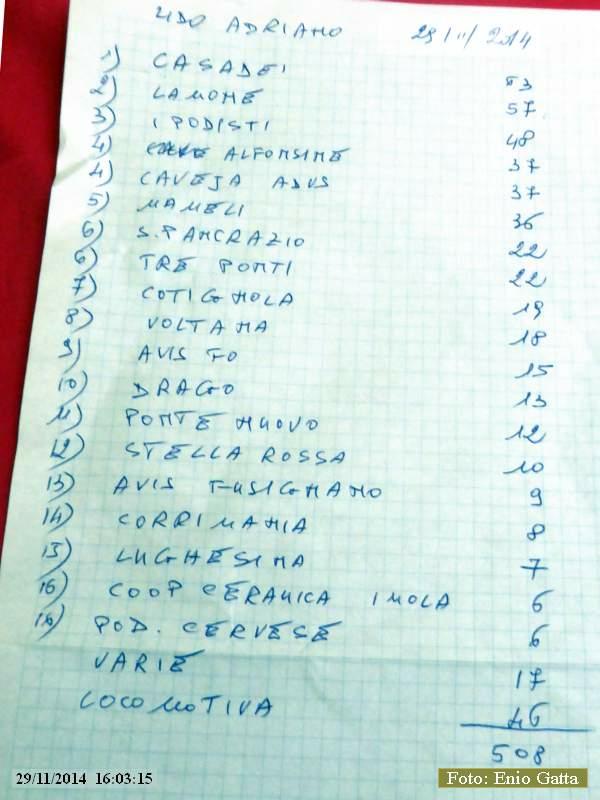 LIDO ADRIANO 29/11/2014
1) CASADEI 63
2) LAMONE 57
3) I PODISTI 48
4) ALFONSINE 37
4) CAVEJA ADVS 37
5) MAMELI 36
6) S. PANCRAZIO 22
6) TRE PONTI 22
7) COTIGNOLA 19
8) VOLTANA 18
9) AVIS FO 15
10) DRAGO 13
11) PONTE NUOVO 12
12) STELLA ROSSA 10
13) AVIS FUSIGNANO 9
14) CORRIMANIA 8
15) LUGHESINA 7
16) COOP CERAMICA IMOLA 6
16) POD. CERVESE 6
VARIE 17
LOCOMOTIVA 46
508
29/11/2014 16:03:15
Foto: Enio Gatta